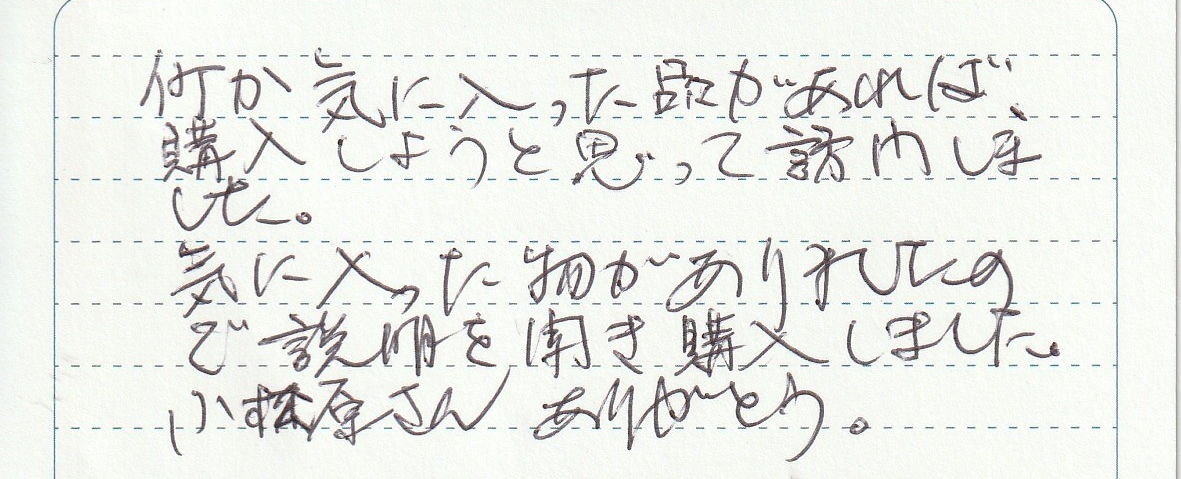 何か気に入った品があれば、
購入しようと思って訪問しま
した。
気に入った物がありましたの
で説明を聞き購入しました。
小松原さん ありがとう。